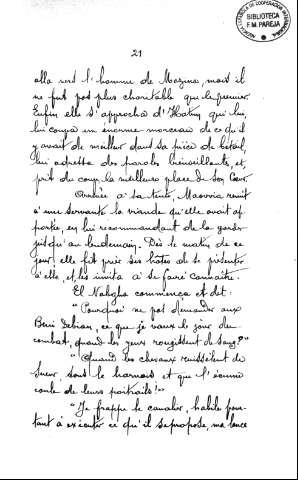 21
alla vers l'homme de Mozina, mais il
ne fut pas plus charitable que le premier.
Enfin elle s'approcha d'Hatim qui lui,
lui coupa un énorme morceau de ce qu'il
y avait de meilleur dans sa pièce de bétail,
lui adressa des paroles bienveillantes, et
prit du coup la meilleure place de son cœur.
Arrivée à sa tente, Maouia remit
à une servante la viande qu'elle avait ap-
portée, en lui recommandant de la garder
jusqu'au lendemain. Dès le matin de ce
jour elle fit prier ses hôtes de se présenter
à elle, et les invita à se faire connaître.
El Nabigha commença et dit:
"Pourquoi ne pas demander aux
Beni Debian, ce que je vaux le jour du
combat, quand les yeux rougissent de sang?"
"Quand les chevaux ruissèlent de
sueur, sous le harnois et que l'écume
coule de leurs poitrails!"
"Je frappe le cavalier, habile pour-
tant à exécuter ce qu'il se propose, ma lance
BIBLIOTECA
F.M. PAREJA